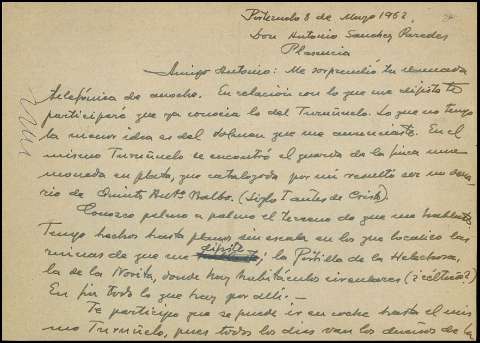 Portezuelo 8 de Mayo 1962.
Don Antonio Sanchez Paredes
Plasencia
Amigo Antonio: Me sorprendió tu llamada
telefónica de anoche. En relación con lo que me dijiste te
participaré que ya conocia lo del Turuñuelo. Lo que no tengo
la menor idea es del dolmen que me anunciaste. En el
mismo Turuñuelo se encontró el guarda de la finca una
moneda en plata, que catalogada por mi resultó ser un dena-
rio de Quinto Antº Balbo. (Siglo I antes de Cristo).
Conozco palmo a palmo el terreno de que me hablaste.
Tengo hechos hasta planos sin escala en los que localizo las
ruinas de que me dijiste; la Portilla de la Helechosa,
la de la Novita, donde hay habitáculos circulares (¿celtas?)
En fin todo lo que hay por allí. —
Te participo que se puede ir en coche hasta el mis-
mo Turuñuelo, pues todos los dias van los dueños de la